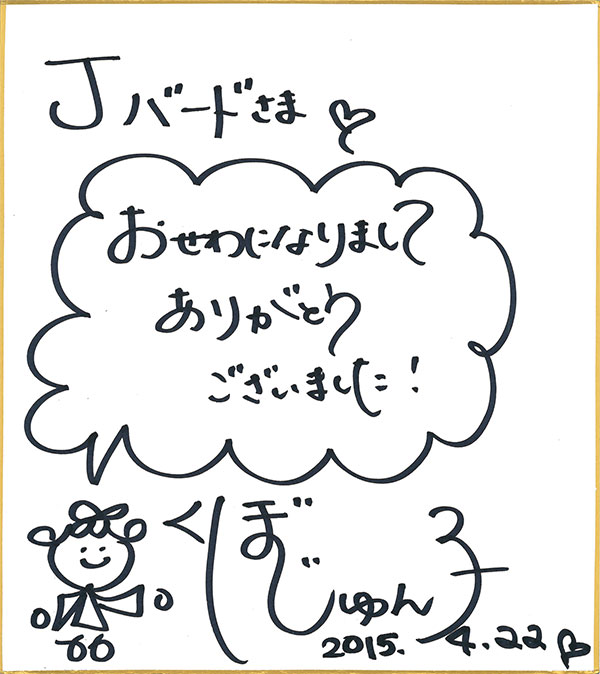 Jバードさま
おせわになりまして
ありがとう
ございました!
くぼじゅん子
2015. 4.22